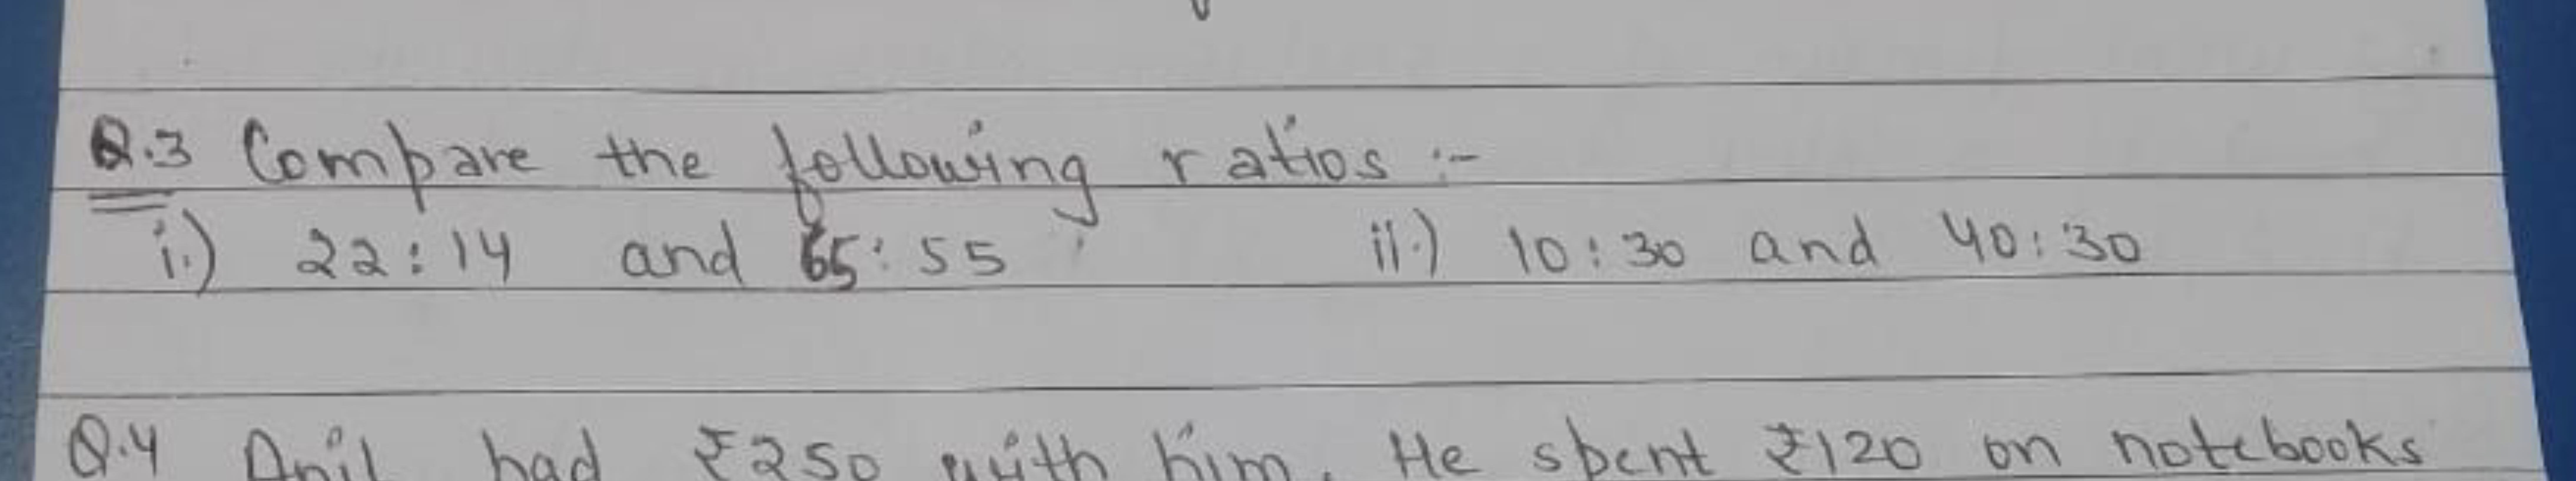 Q.3 Compare the following ratios :-
i.) 22:14 and 65:55 ii.) 10:30 and 40:30
Q.4 Anil had ₹250 with him. He spent ₹120 on notebooks